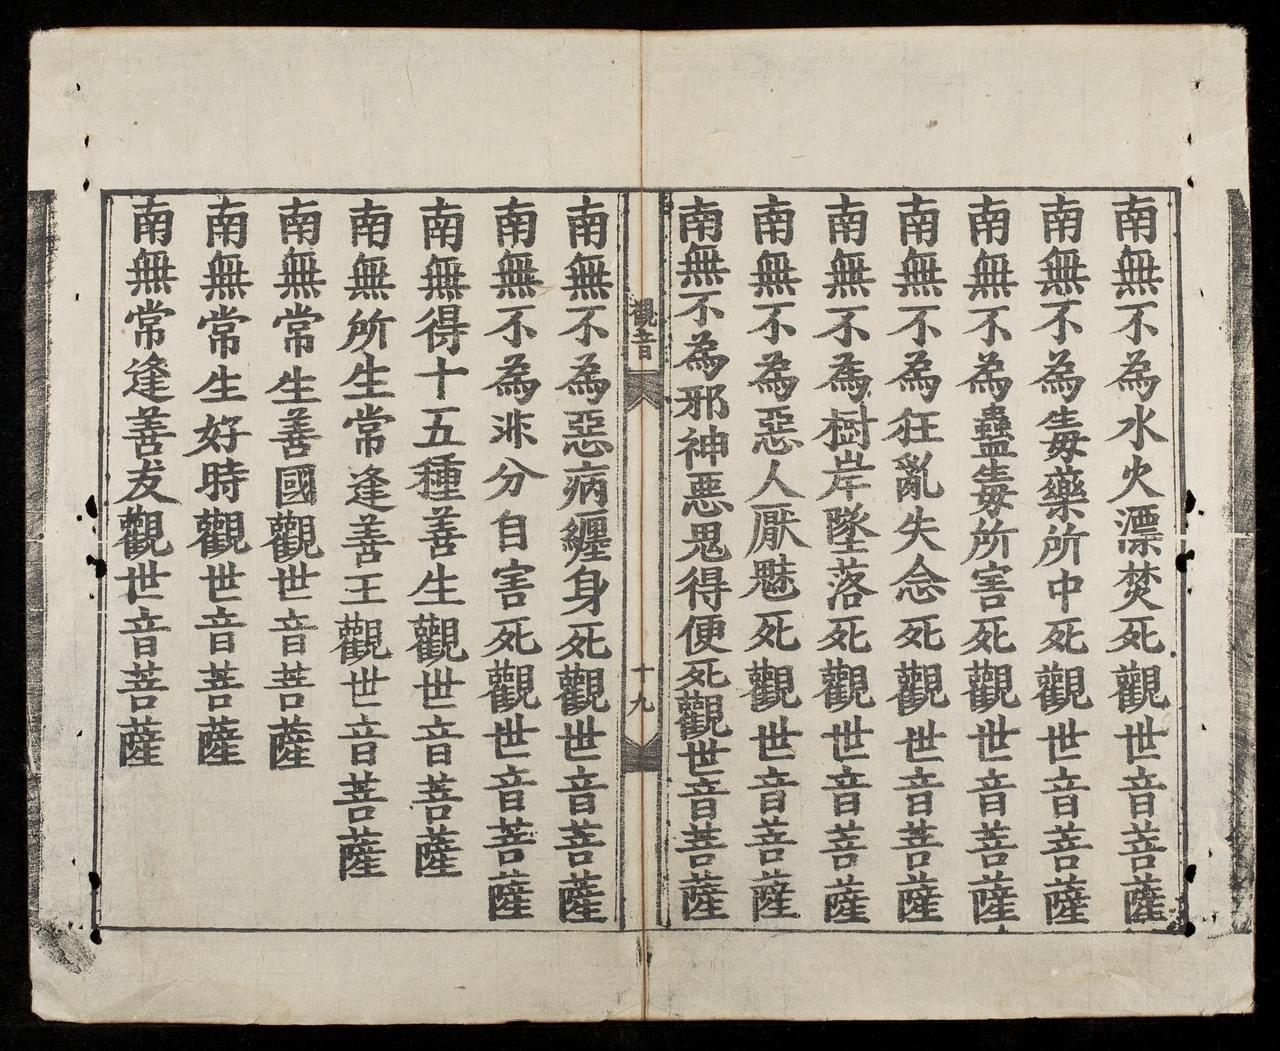 南無不為水火漂焚死觀世音菩薩
南無不為毒藥所中死觀世音菩薩
南無不為蠱毒所害死觀世音菩薩
南無不為狂亂失念死觀世音菩薩
南無不為樹岸墜落死觀世音菩薩
南無不為惡人厭魅死觀世音菩薩
南無不為邪神惡鬼得便死觀世音菩薩
觀音
十九
南無不為惡病纏身死觀世音菩薩
南無不為非分自害死觀世音菩薩
南無得十五種善生觀世音菩薩
南無所生常逢善王觀世音菩薩
南無常生善國觀世音菩薩
南無常生好時觀世音菩薩
南無常逢善友觀世音菩薩